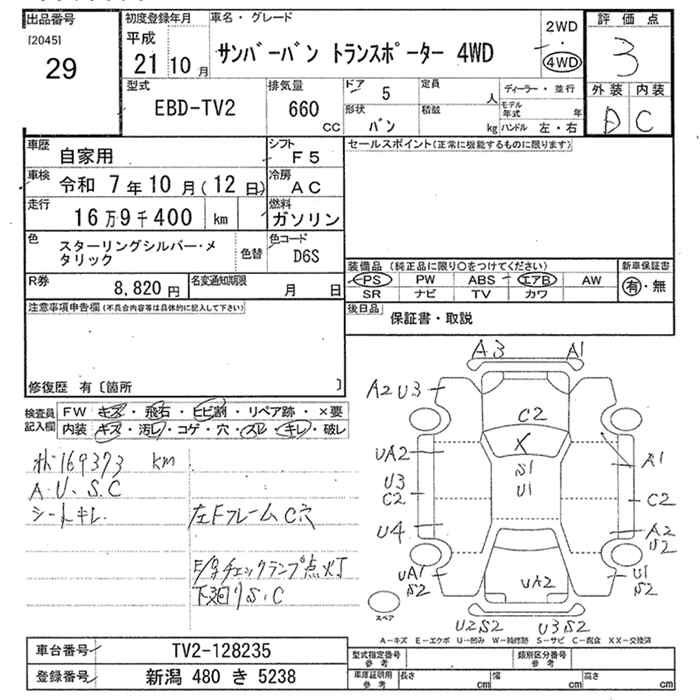 出品番号
[2045]
29
初度登録年月
平成
21 10 月
車名・グレード
サンバーバン トランスポーター 4WD
2WD
・
4WD
評価点
3
外装 内装
D C
型式
EBD-TV2
排気量
660 CC
ドア 5
定員 人
形状 バン
積載 kg
ディーラー・並行
モデル年式 年
ハンドル 左・右
車歴 自家用
シフト F5
セールスポイント(正常に機能するものに限ります)
車検 令和 7年10月(12日)
冷房 AC
走行 16万9千400 km
燃料 ガソリン
色 スターリングシルバー・メタリック
色替
色コード D6S
装備品 (純正品に限り○をつけてください)
新車保証書
PS PW ABS エアB AW
有・無
SR ナビ TV カワ
R券 8,820 円
名変通知期限 月 日
後日品 保証書・取説
注意事項申告欄(不具合内容等は具体的に記入して下さい)
修復歴 有〔箇所 〕
検査員記入欄
FW キズ・飛石・ヒビ割・リペア跡・×要
内装 キズ・汚レ・コゲ・穴・スレ・キレ・破レ
169373 km
A.U.S.C
シートキレ
左Fフレーム C穴
チェックランプ点灯
下廻りS.C
A3 A1
A2 U3
C2
UA2
X
S1
U1
A1
U3
C2
C2
U4
A2
U2
UA1
S2
UA2
U1
S2
スペア
U2S2 U3S2
A-キズ E-エクボ U-凹み W-補修跡 S-サビ C-腐食 XX-交換済
車台番号 TV2-128235
登録番号 新潟 480 き 5238
型式指定番号 参考
類別区分番号 参考
車庫証明用 参考
長さ cm
幅 cm
高さ cm